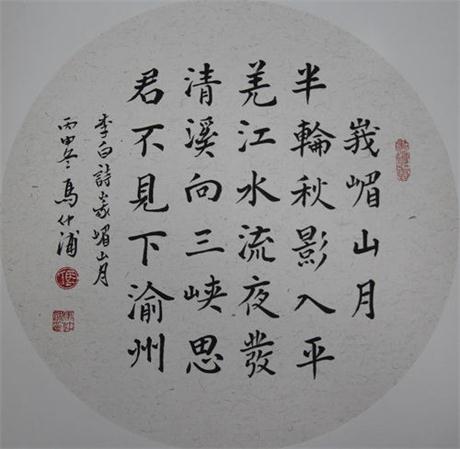 峨嵋山月
半輪秋影入平
羌江水流夜發
清溪向三峡思
君不見下渝州
李白詩峩嵋山月
丙申冬馬仲浦